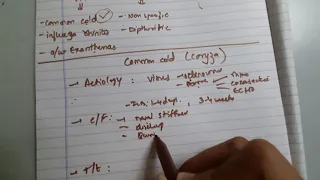 - Common cold ✓ - Non specific
- influenza Rhinitis - Diphtheric
- a/w Exanthemas
Common cold (coryza)
→ Aetiology: virus - adenovirus
- Rhino
- Coxsackie
- ECHO
- Inc: 1-4 days, 3-4 weeks
→ C/F: - nasal stuffiness
- discharge
→ T/t: